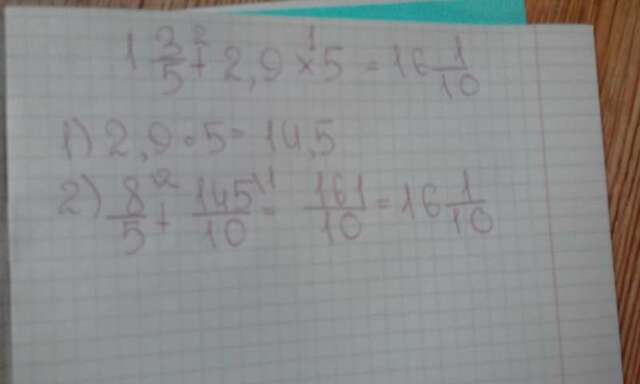 1 3/5 + 2,9 × 5 = 16 1/10
1) 2,9 · 5 = 14,5
2) 8/5 + 145/10 = 161/10 = 16 1/10